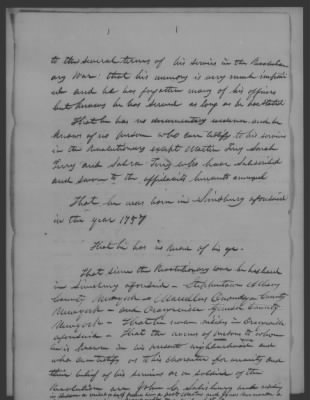 to the several terms of his service in the Revolution
ary War: that his memory is very much impair
ed and he has forgotten many of his officers
but knows he has served as long as he has stated
That he has no documentary evidence and he
knows of no person who can testify to his services
in the Revolutionary except Martin Sarah
and who have subscribed
and sworn to the affidavits hereunto annexed
That he was born in Simsbury aforesaid
in the year 1757
That he has no record of his age.
That since the Revolutionary war he has lived
in Simsbury aforesaid - Stephentown Albany
County Newyork - Marcellus Onondaga County
Newyork - and County
Newyork - That he now resides in
aforesaid - That the names of persons to whom
he is known in his present neighborhood and
who can testify as to his character for veracity and
their belief of his services as a soldier of the
Revolution are John G. Salisbury